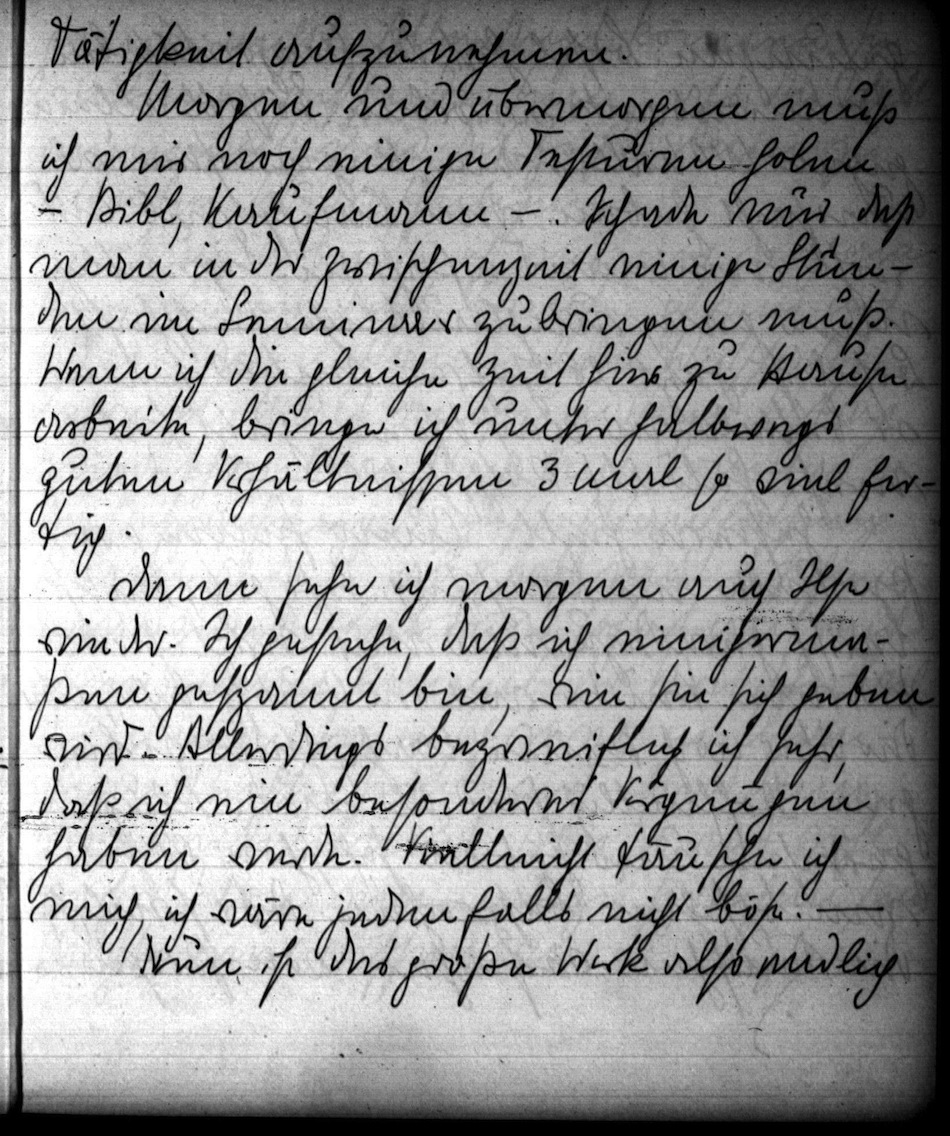 Tätigkeit aufzunehmen.
Morgen und übermorgen muß
ich mir noch einige Testuren holen
– Bibl, Kaufmann –. Schade nur daß
man in der Zwischenzeit einige Stun-
den im Seminar zubringen muß.
Wenn ich die gleiche Zeit hier zu Hause
arbeite, bringe ich unter halbwegs
guten Verhältnissen 3 mal so viel fer-
tig.
Dann sehe ich morgen auch Ilse
wieder. Ich gestehe, daß ich einigerma-
ßen gespannt bin, wie sie sich geben
wird. Allerdings bezweifle ich sehr,
daß ich ein besonderes Vergnügen
haben werde. Vielleicht täusche ich
mich, ich wäre jedenfalls nicht böse. —
Nun ist das große Werk also endlich